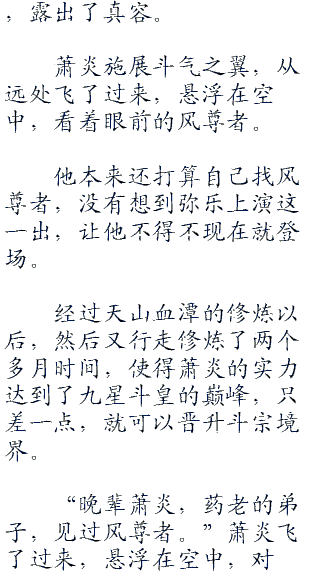 ，露出了真容。
萧炎施展斗气之翼，从
远处飞了过来，悬浮在空
中，看着眼前的风尊者。
他本来还打算自己找风
尊者，没有想到弥乐上演这
一出，让他不得不现在就登
场。
经过天山血潭的修炼以
后，然后又行走修炼了两个
多月时间，使得萧炎的实力
达到了九星斗皇的巅峰，只
差一点，就可以晋升斗宗境
界。
“晚辈萧炎，药老的弟
子，见过风尊者。”萧炎飞
了过来，悬浮在空中，对